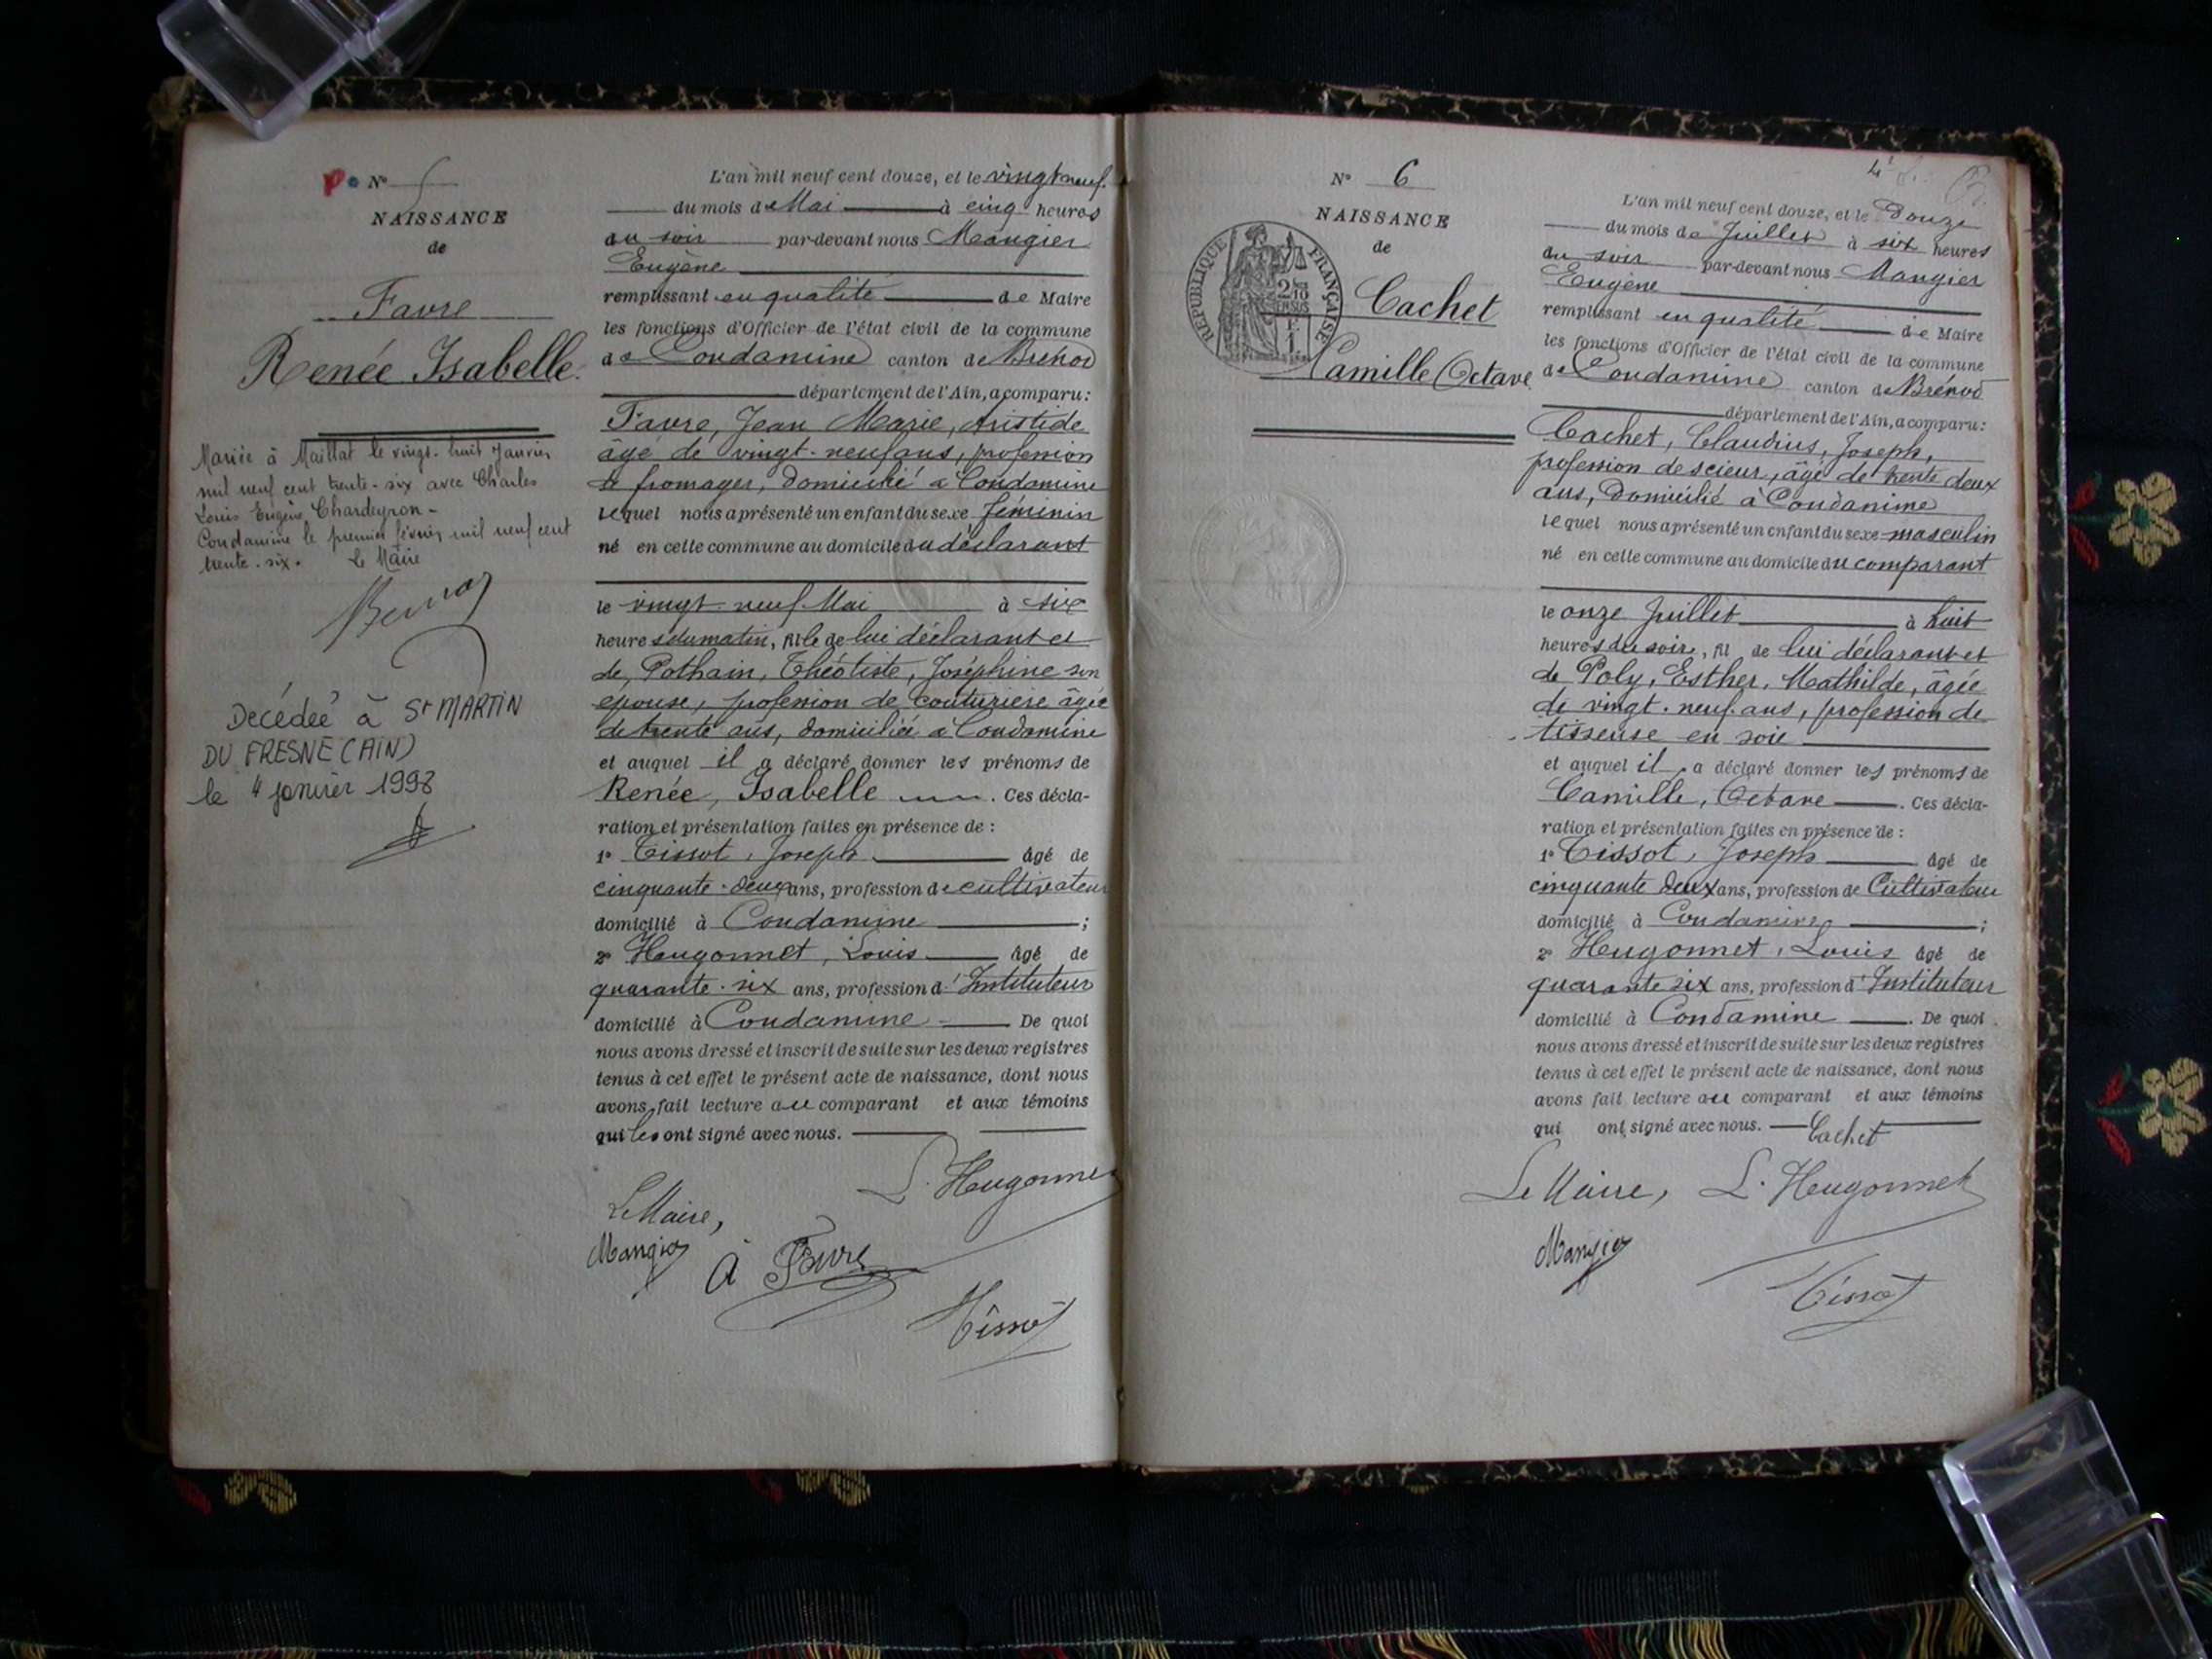 N° 5
NAISSANCE
de
Favre
Renée Isabelle.
Mariée à Maillat le vingt-huit Janvier
mil neuf cent trente-six avec Charles
Louis Eugène Chardeyron -
Condamine le premier février mil neuf cent
trente-six. Le Maire
Décédée à St MARTIN
DU FRESNE (AIN)
le 4 janvier 1998
L'an mil neuf cent douze, et le vingt neuf
du mois de Mai à cinq heures
du soir par-devant nous Mangier
Eugène
remplissant en qualité de Maire
les fonctions d'Officier de l'état civil de la commune
de Condamine canton de Brénod
département de l'Ain, a comparu :
Favre, Jean Marie, Aristide
âgé de vingt-neuf ans, profession
de fromager, domicilié à Condamine
lequel nous a présenté un enfant du sexe féminin
né en cette commune au domicile du déclarant
le vingt-neuf Mai à six
heures du matin, fille de lui déclarant et
de Pothain, Théotiste, Joséphine son
épouse, profession de couturière âgée
de trente ans, domiciliée à Condamine
et auquel il a déclaré donner les prénoms de
Renée, Isabelle . Ces décla-
ration et présentation faites en présence de :
1° Tissot, Joseph âgé de
cinquante-deux ans, profession de cultivateur
domicilié à Condamine ;
2° Hugonnet, Louis âgé de
quarante-six ans, profession d'Instituteur
domicilié à Condamine De quoi
nous avons dressé et inscrit de suite sur les deux registres
tenus à cet effet le présent acte de naissance, dont nous
avons fait lecture au comparant et aux témoins
qui les ont signé avec nous.
L. Hugonnet
Le Maire,
Mangier
A Favre
Tissot
4
N° 6
NAISSANCE
de
RÉPUBLIQUE FRANÇAISE
Cachet
Camille Octave
L'an mil neuf cent douze, et le Douze
du mois de Juillet à six heures
du soir par-devant nous Mangier
Eugène
remplissant en qualité de Maire
les fonctions d'Officier de l'état civil de la commune
de Condamine canton de Brénod
département de l'Ain, a comparu :
Cachet, Claudius, Joseph,
profession de scieur, âgé de trente deux
ans, domicilié à Condamine
lequel nous a présenté un enfant du sexe masculin
né en cette commune au domicile du comparant
le onze Juillet à huit
heures du soir, fil de lui déclarant et
de Poly, Esther, Mathilde, âgée
de vingt-neuf ans, profession de
tisseuse en soie
et auquel il a déclaré donner les prénoms de
Camille, Octave . Ces décla-
ration et présentation faites en présence de :
1° Tissot, Joseph âgé de
cinquante deux ans, profession de Cultivateur
domicilié à Condamine ;
2° Hugonnet, Louis âgé de
quarante six ans, profession d'Instituteur
domicilié à Condamine . De quoi
nous avons dressé et inscrit de suite sur les deux registres
tenus à cet effet le présent acte de naissance, dont nous
avons fait lecture au comparant et aux témoins
qui ont signé avec nous. Cachet
Le Maire, L. Hugonnet
Mangier
Tissot